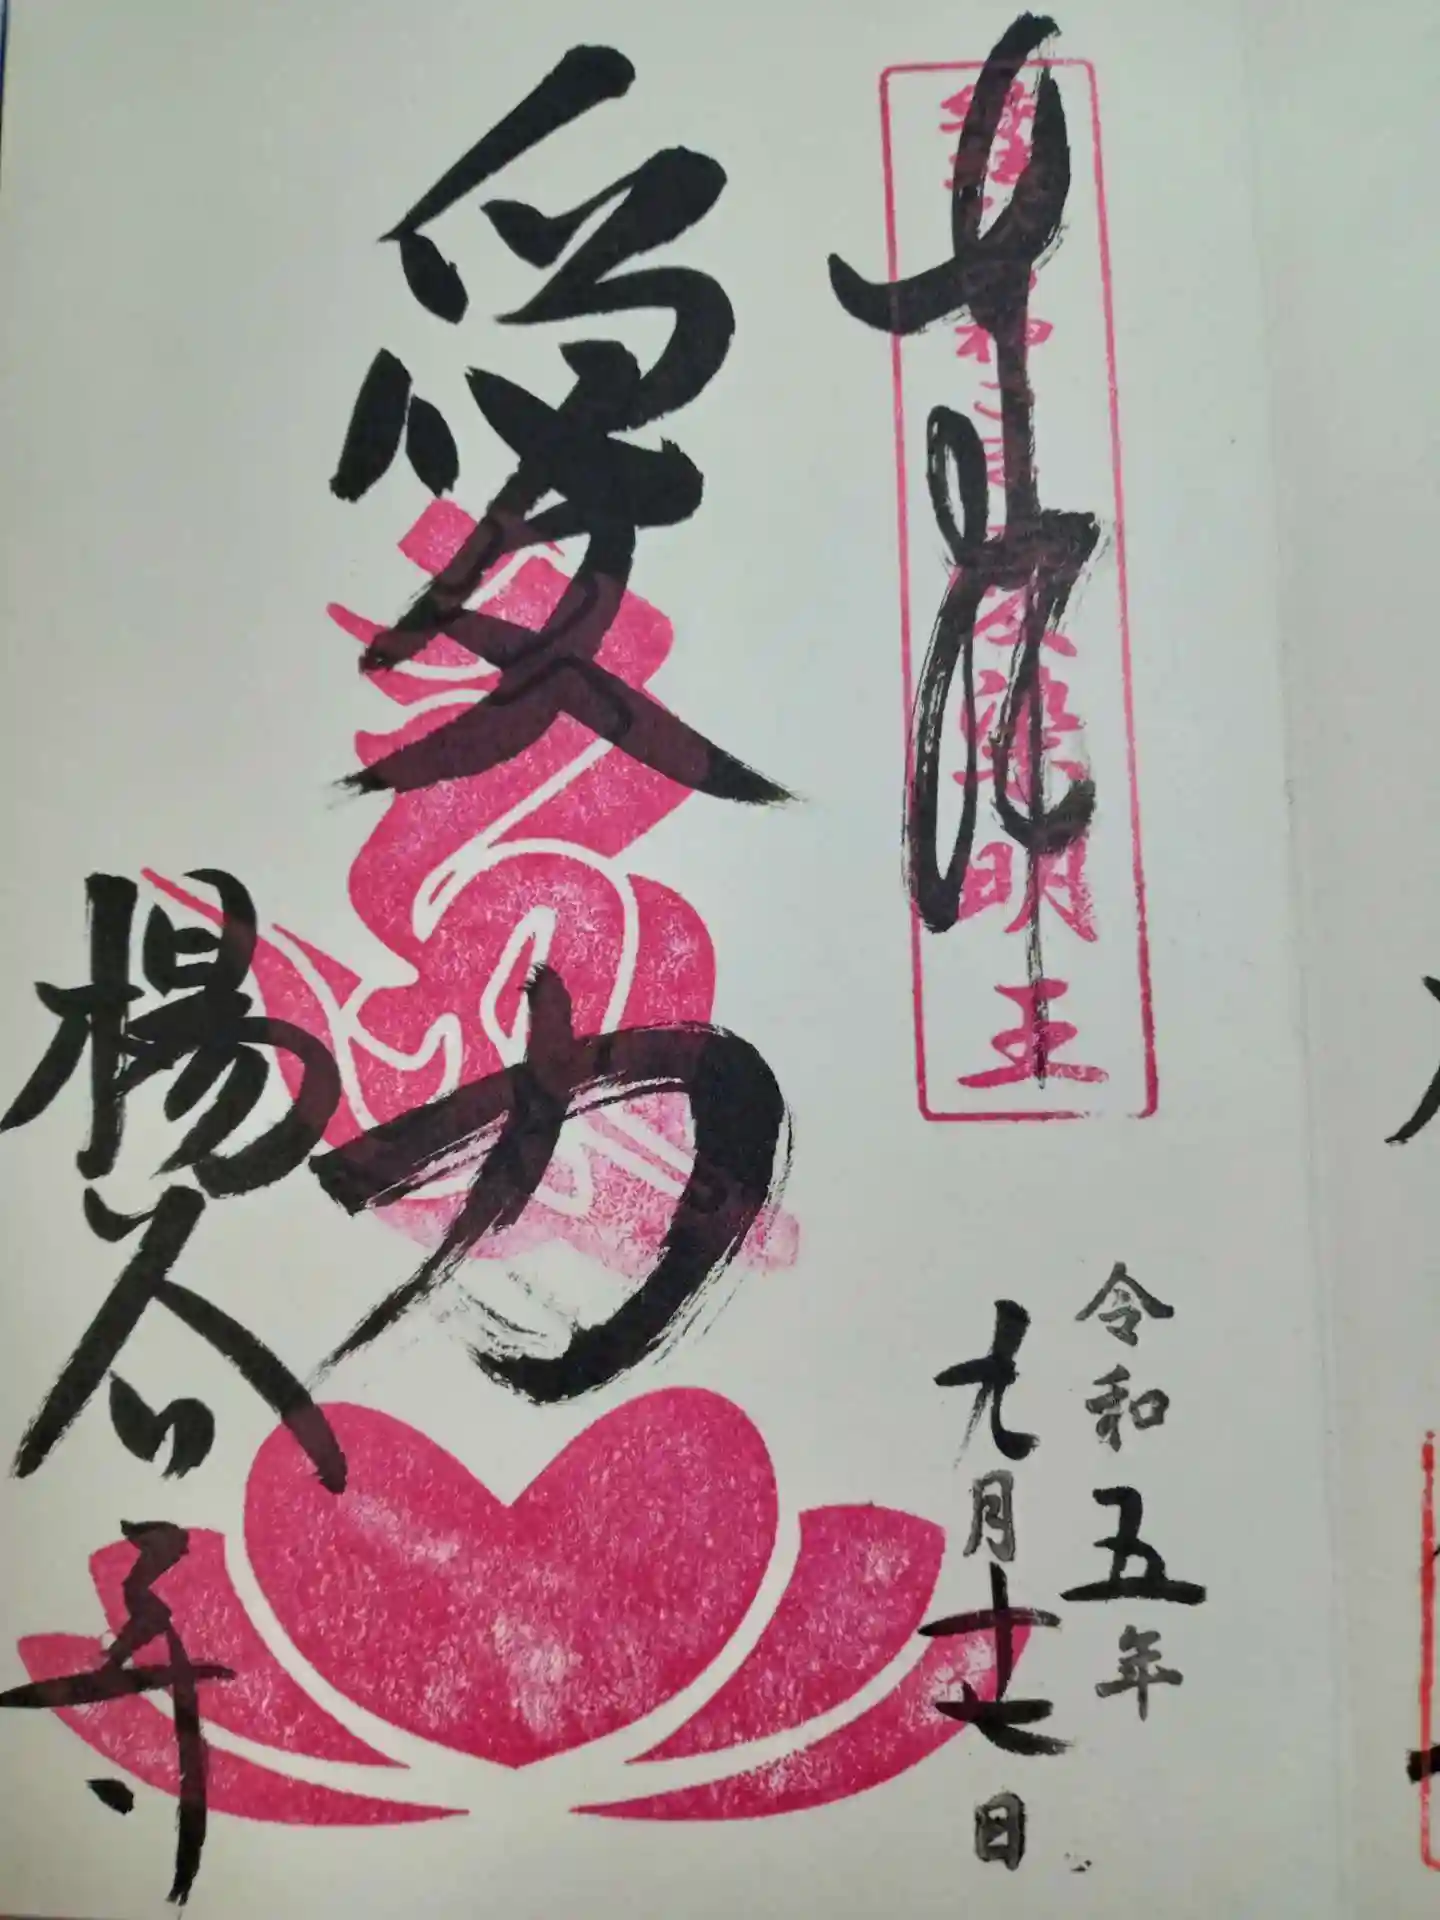 奉拝
愛染明王
令和五年
九月十七日
愛力
楊谷寺